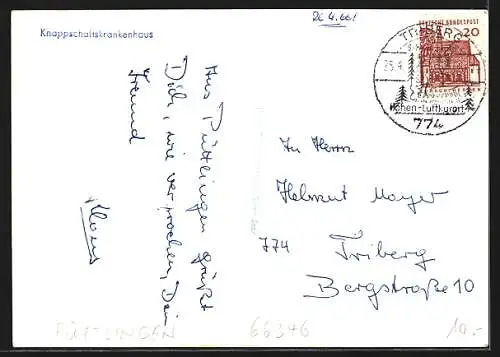 De 4.661
Knappschaftskrankenhaus
Aus Püttlingen grüßt
Dich, wie versprochen, Dein
Freund
Klaus
DEUTSCHE BUNDESPOST
20
TRIBERG
25.4.
Höhen-Luftkurort
774
An Herrn
Helmut Mayer
774 Triberg
Bergstraße 10
PÜTTLINGEN 66346
10,-